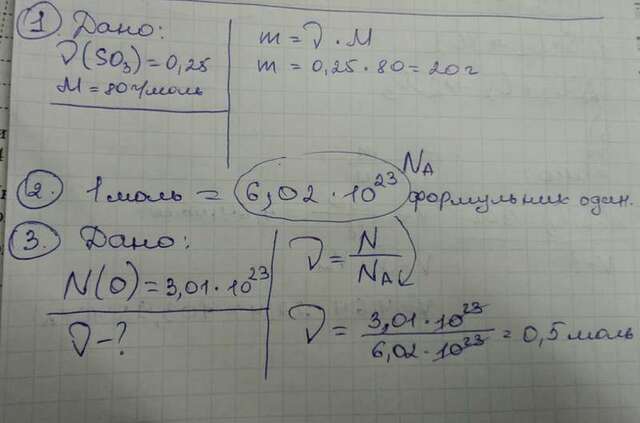 1. Дано:
ν(SO₃) = 0,25
M = 80 г/моль
m = ν · M
m = 0,25 · 80 = 20 г
2. 1 моль = 6,02 · 10²³ формульник один.
N_A
3. Дано:
N(O) = 3,01 · 10²³
ν – ?
ν = N / N_A
ν = 3,01 · 10²³ / 6,02 · 10²³ = 0,5 моль